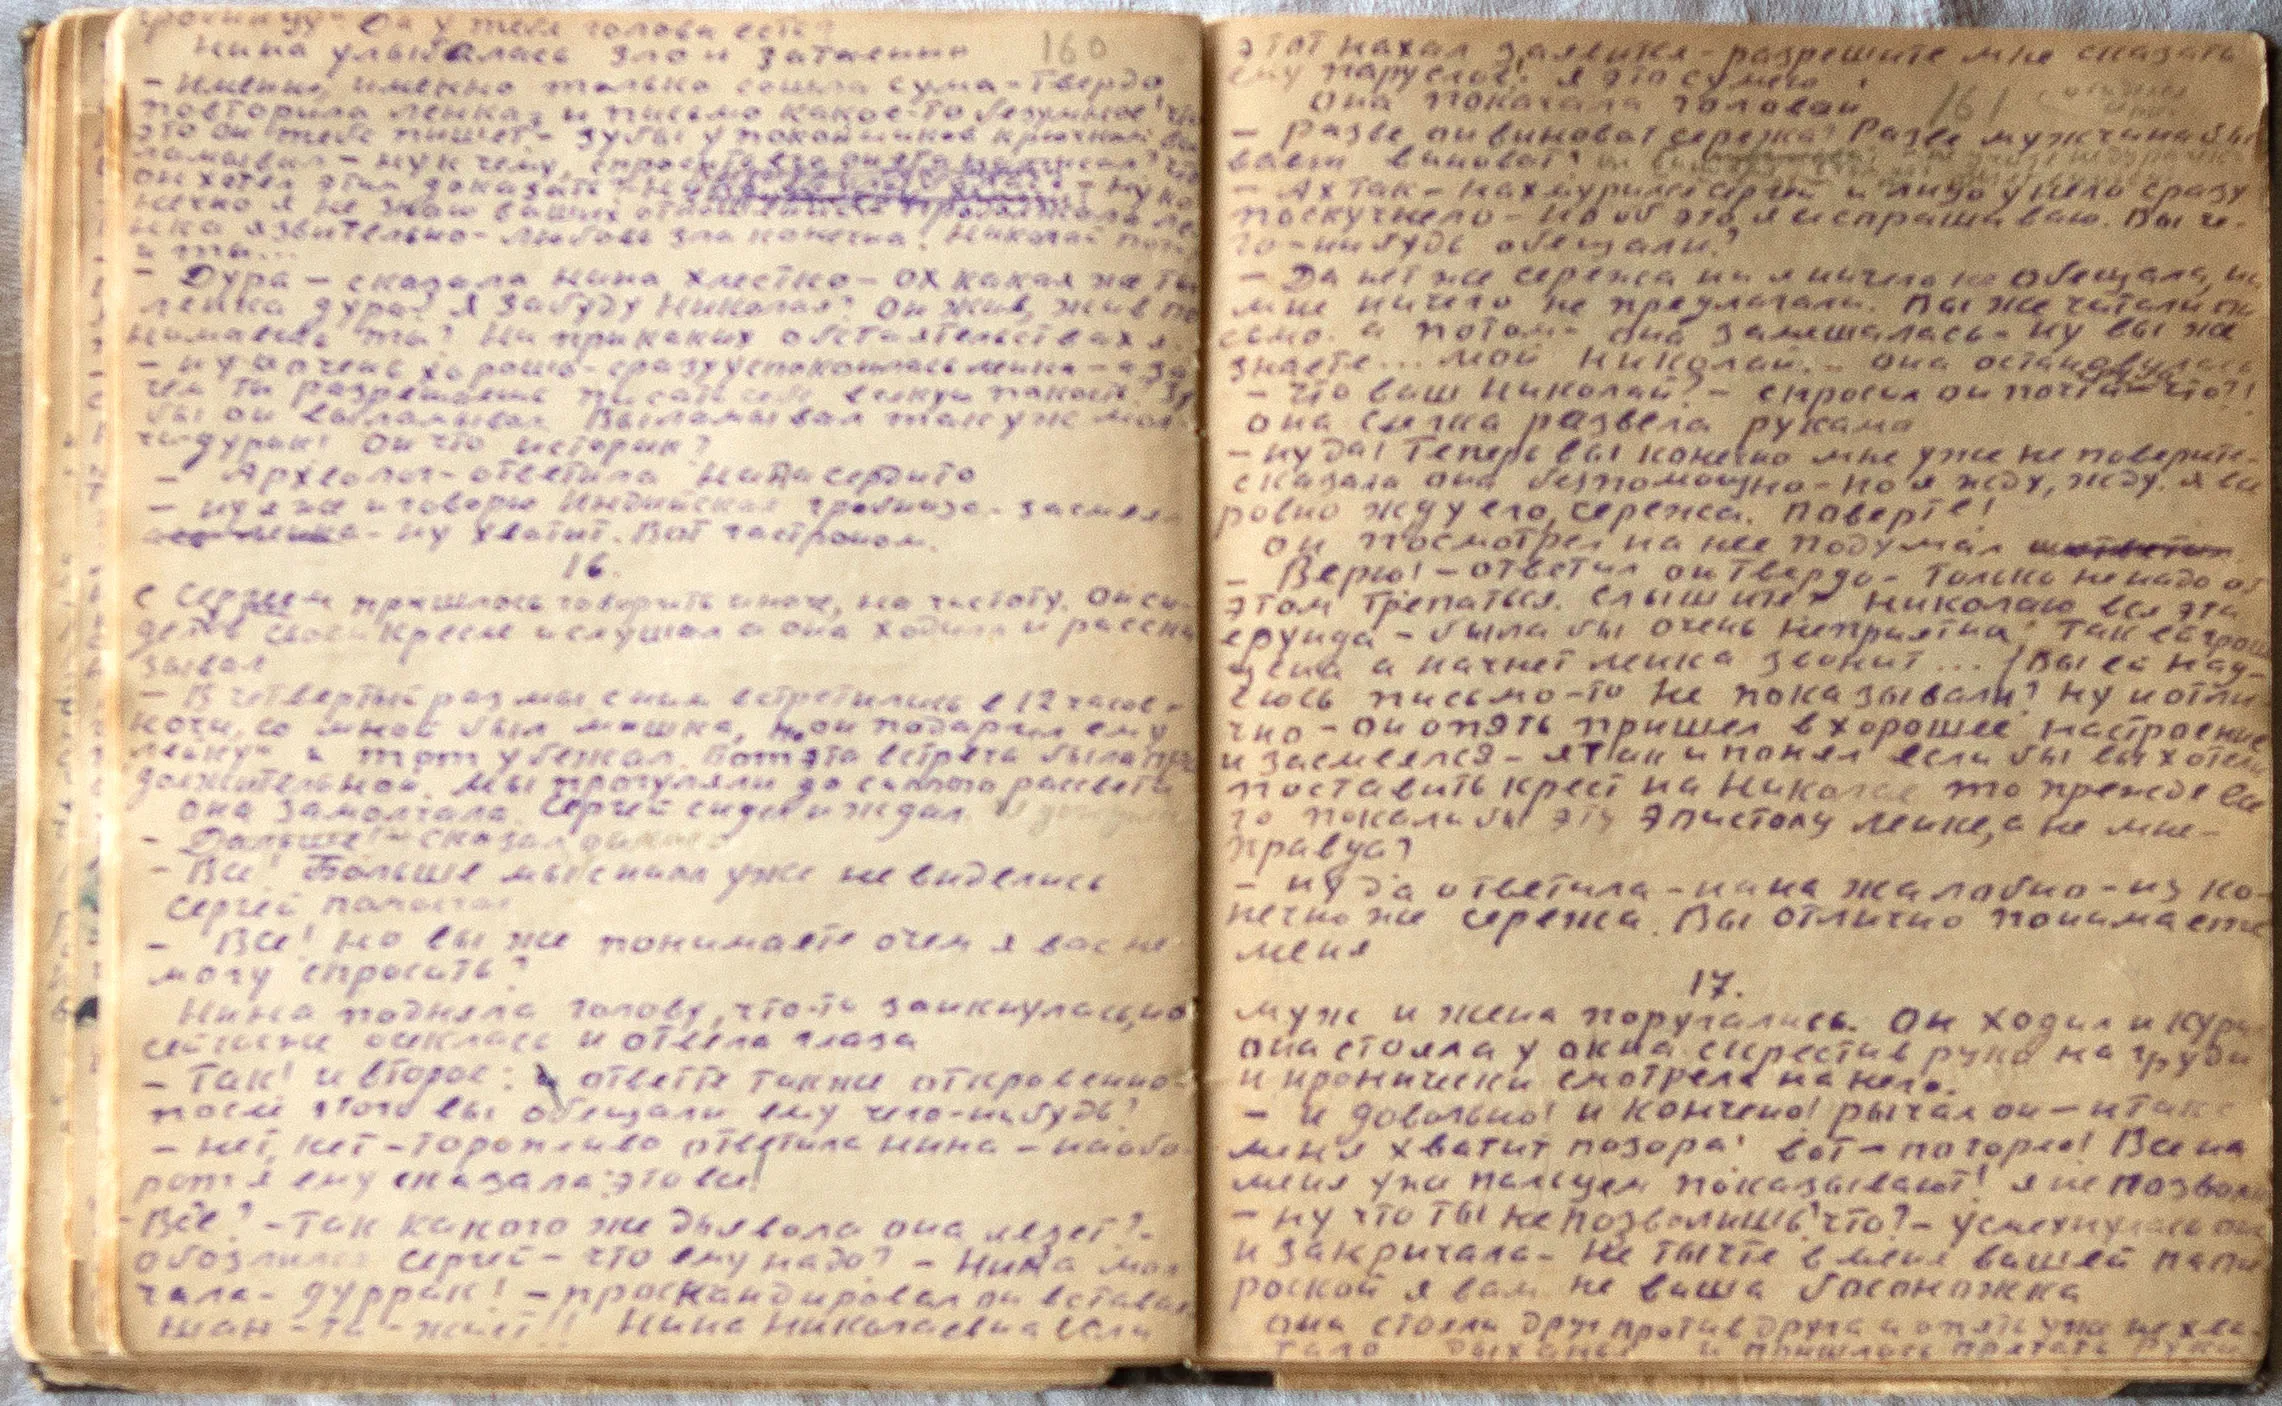 Да у тебя голова есть?
Нина улыбалась зло и затаенно
160
— Именно, именно только сошла сума — твердо
повторила Ленка, и письмо какое-то безумное!
это он тебе пишет — зубы у покойников
ламывал — ну к чему, спросить
он хотел этим доказать? — ну ко
нечно я не знаю ваших отношений продолжала ле
нка язвительно — любовь зла конечно. Николай
и ты...
— Дура — сказала Нина хлестко — ох какая же ты
ленка дура! Я забуду Николая? Он жив, жив по
нимаешь ты? Ни при каких обстоятельствах я
— ну и очень хорошо — сразу успокоилась ленка — а за
чем ты разрешаешь писать себе всякую пакость. Зу
бы он выламывал. Выламывал так уж мол
чи дурак! Он что историк?
— Археолог — ответила Нина сердито
— ну я же и говорю Индийская гробница — засмеял
ась ленка — ну хватит. Вот гастроном.
16.
с Сергеем пришлось говорить иначе, на чистоту. Он си
дел в своем кресле и слушал а она ходила и расска
зывал
— В четвертый раз мы с ним встретились в 12 часов
ночи, со мной был мишка, но он подарил ему
лейку и тот убежал. Вот эта встреча была про
должительной. Мы прогуляли до самого рассвета
она замолчала. Сергей сидел и ждал.
— Дальше! — сказал он
— Все! Больше мы с ним уже не виделись
Сергей помолчал
— Все! Но вы же понимаете о чем я вас не
могу спросить?
Нина подняла голову, что-то заикнулась, но
сейчас же осеклась и отвела глаза
— Так! и второе: ответьте также откровенно
после этого вы обещали ему чего-нибудь?
— нет, нет — торопливо ответила Нина — наобо
рот я ему сказала: это все!
— Все? — Так какого же дьявола она лезет? —
обозлился Сергей — что ему надо? — Нина мол
чала — дуррак! — проскандировал он вставая
шан-та-жист!! Нина Николаевна если
этот нахал заявится — разрешите мне сказать
ему пару слов! я это сумею
Она покачала головой
161
— Разве он виноват Сережа? Разве мужчина бы
вает виноват?
— Ах так — нахмурился Сергей и лицо у него сразу
поскучнело — но об это я и спрашиваю. Вы че-
го-нибудь обещали?
— Да нет же Сережа ни я ничего не обещала, ни
мне ничего не предлагали. Вы же читали пи
сьмо. а потом — она замешалась — ну вы же
знаете... мой Николай... она остановилась
— Что ваш Николай? — спросил он почти — что?!
она слегка развела руками
— ну да! Теперь вы конечно мне уже не поверите —
сказала она безпомощно — но я жду, жду. я все
ровно жду его, Сережа. Поверте!
он посмотрел на нее подумал
— Верю! — ответил он твердо — только не надо об
этом трепаться. Слышит Николаю вся эта
ерунда — была бы очень неприятна! Так ей грош
цена а начнет ленка звонит... (Вы ей над-
еюсь письмо-то не показывали? Ну и отли
чно — он опять пришел в хорошее настроение
и засмеялся — я так и понял если бы вы хотели
поставить крест на Николае то прежде все
го показали бы эту эпистолу ленке, а не мне —
правда?
— ну да ответила — нина жалобно — из ко-
нечно же Сережа. Вы отлично понимаете
меня
17.
муж и жена поругались. Он ходил и кури
она стояла у окна скрестив руки на груди
и иронически смотрела на него.
— и довольно! и кончено! рычал он — и так с
меня хватит позора! вот — по горло! Все на
меня уже пальцем показывают! я не позволю
— ну что ты не позволишь, что? — усмехнулась она
и закричала — Не тычте в меня вашей папи
роской я вам не ваша босоножка
они стояли друг против друга и опять уже не хва-
тало дыханья и пришлось прятать руки